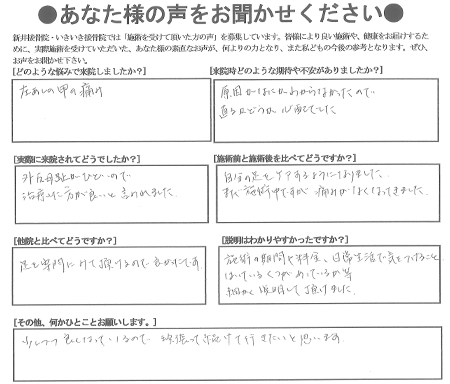 ●あなた様の声をお聞かせください●
新井接骨院・いきいき接骨院では「施術を受けて頂いた方の声」を募集しています。皆様により良い施術や、健康をお届けするために、実際施術を受けていただいた、あなた様の素直なお声が、何よりの力となり、また私どもの今後の参考となります。ぜひ、お声をお聞かせ下さい。
[どのような悩みで来院しましたか？]
左あしの甲の痛み
[来院時どのような期待や不安がありましたか？]
原因がなにかわからなかったので
直るかどうか心配でした
[実際に来院されてどうでしたか？]
外反母趾がひどいので
治療した方が良いと言われました
[施術前と施術後を比べてどうですか？]
自分の足をケアするようになりました。
まだ施術中ですが痛みがなくなってきました。
[他院と比べてどうですか？]
足を専門に 頂けるので
[説明はわかりやすかったですか？]
施術の期間や料金、日常生活で気をつけること
はいているくつがあっているか等
細かく説明して頂けました。
[その他、何かひとことお願いします。]
少しずつ良くなっているので 頑張って続けて行きたいと思います